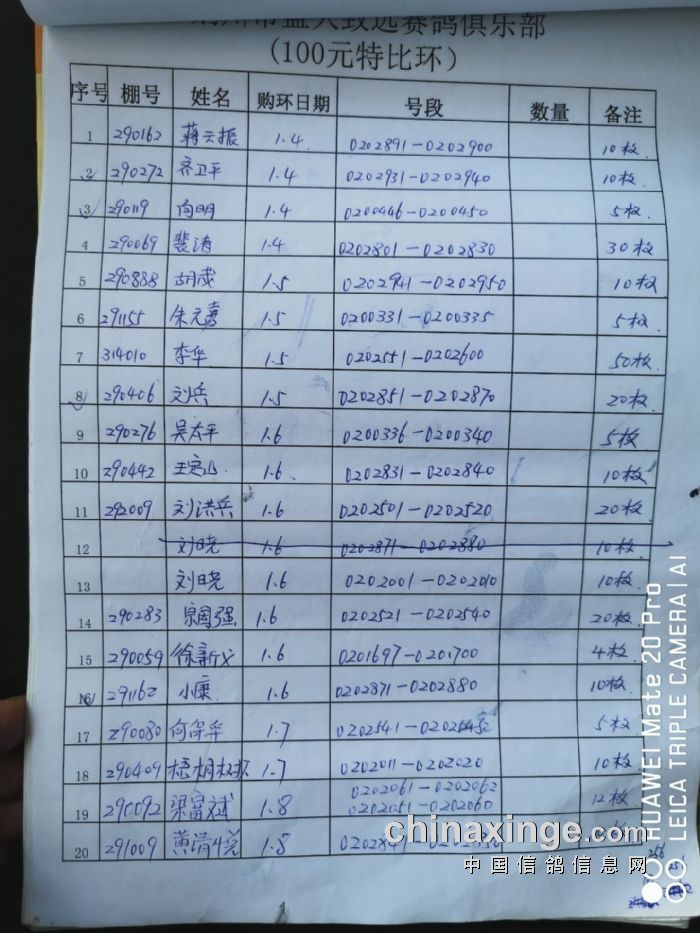 致远赛鸽俱乐部
(100元特比环)
序号 棚号 姓名 购环日期 号段 数量 备注
1 290162 蒋云振 1.4 0202891-0202900 10枚
2 290272 齐卫平 1.4 0202931-0202940 10枚
3 290119 向明 1.4 0200446-0200450 5枚
4 290069 裴涛 1.4 0202801-0202830 30枚
5 290888 胡成 1.5 0202941-0202950 10枚
6 291155 朱元喜 1.5 0200331-0200335 5枚
7 314010 李华 1.5 0202551-0202600 50枚
8 290406 刘兵 1.5 0202851-0202870 20枚
9 290276 吴太平 1.6 0200336-0200340 5枚
10 290442 王定山 1.6 0202831-0202840 10枚
11 292009 刘洪兵 1.6 0202501-0202520 20枚
12 刘晓 1.6 0202871-0202880 10枚
13 刘晓 1.6 0202001-0202010 10枚
14 290283 强 1.6 0202521-0202540 20枚
15 290059 徐新 1.6 0201697-0201700 4枚
16 291162 小康 1.6 0202871-0202880 10枚
17 290080 何 1.7 0202541- 5枚
18 290409 梧桐 1.7 0202011-0202020 10枚
0202061-0202062
19 290092 梁富斌 1.8 0202051-0202060 12枚
20 291009 黄清悦 1.8
chinaxinge.com
中国信鸽信息网
HUAWEI Mate 20 Pro
LEICA TRIPLE CAMERA | AI